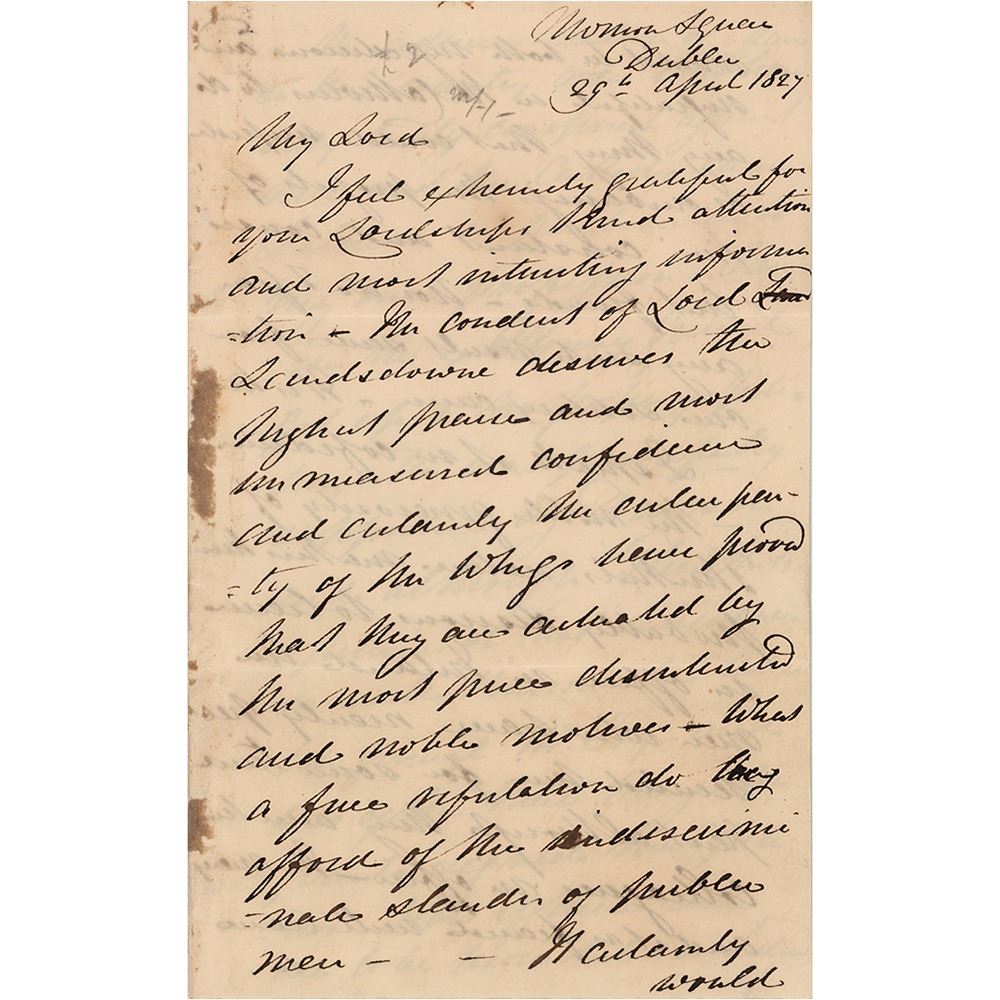 Merrion Square
Dublin
29th April 1827
My Lord
I feel extremely grateful for
your Lordships kind attention
and most interesting informa
=tion - The conduct of Lord
Landsdowne deserves the
highest praise and most
unmeasured confidence
and certainly the entire par-
=ty of the Whigs have proved
that they are actuated by
the most pure disinterested
and noble motives - What
a fine refutation do they
afford of the indiscrimi
=nate slander of public
men - - It certainly
would